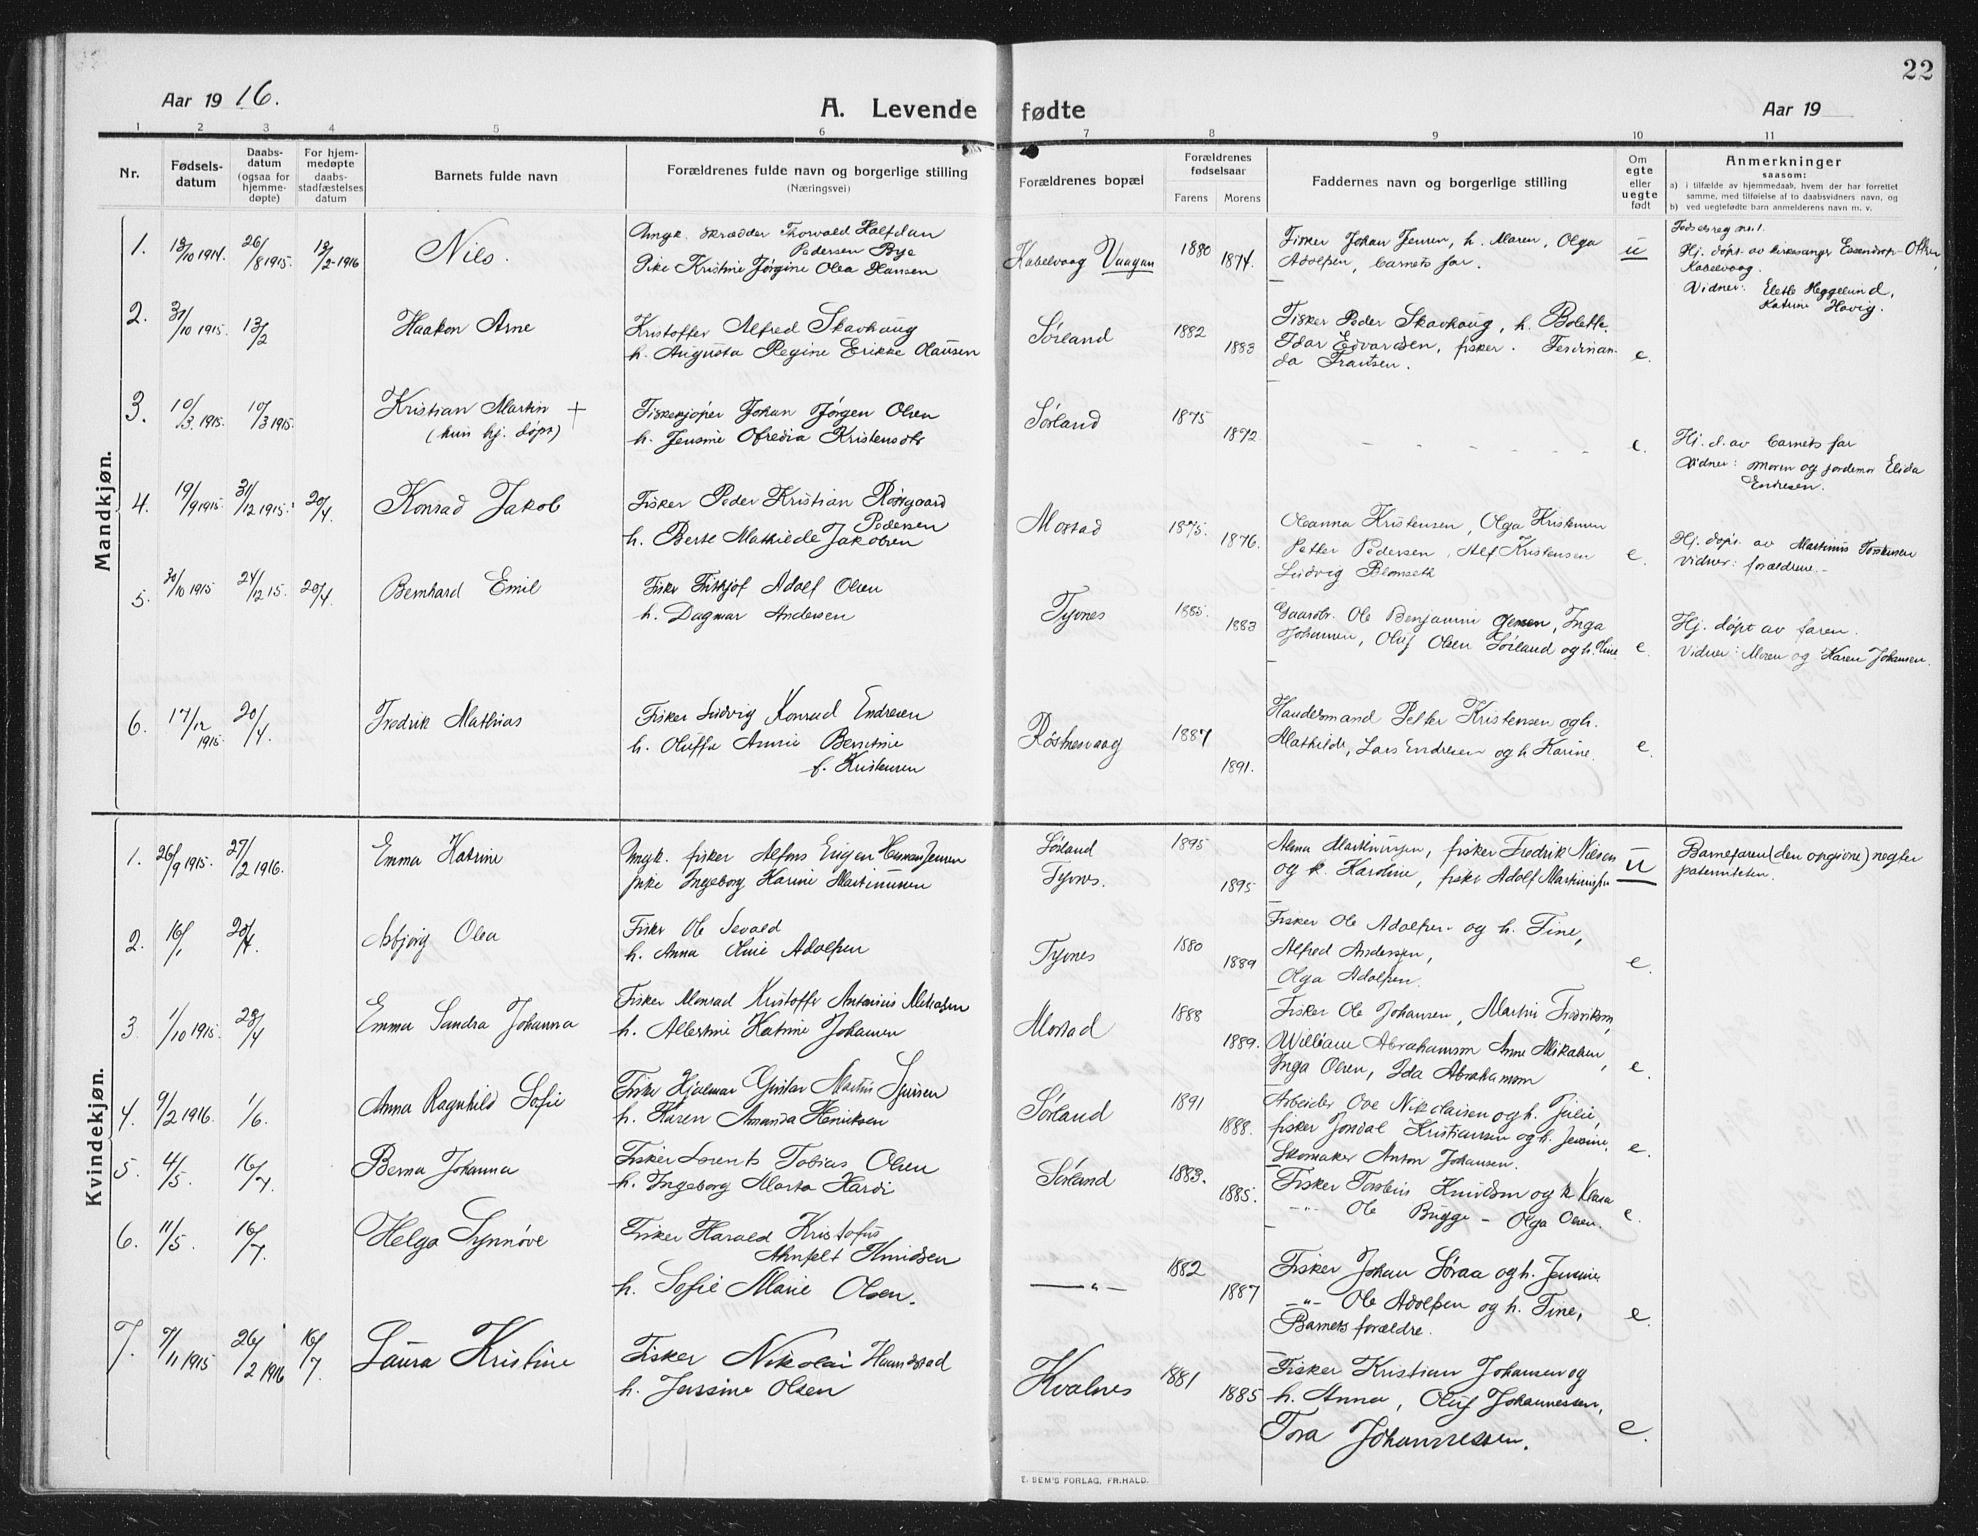 22
Aar 1916.
A. Levende fødte
Aar 19
1 2 3 4 5 6 7 8 9 10 11
Nr.
Fødsels-
datum
Daabs-
datum
(ogsaa for
hjemme-
døpte)
For hjem-
medøpte
daabs-
stadfæstelses
datum
Barnets fulde navn
Forældrenes fulde navn og borgerlige stilling
(Næringsvei)
Forældrenes bopæl
Forældrenes
fødselsaar
Farens Morens
Faddernes navn og borgerlige stilling
Om
egte
eller
uegte
født
Anmerkninger
saasom:
a) i tilfælde av hjemmedaab, hvem der har forrettet
samme, med tilføielse af to daabsvidners navn, og
b) ved uegtefødte barn anmelderens navn m. v.
Mandkjøn.
1. 13/10 1914. 26/8 1915. 13/2-1916 Nils.
Ungk. skrædder Thorvald Halfdan
Pedersen Bye
Pike Kristine Jørgine Olea Hansen
Kabelvaag Vaagan 1880 1874.
Fisker Johan Jensen, h. Maren, Olga
Adolfsen, barnets far.
u
Fødselsreg nr. 1.
Hj. døpt av kirkesanger
Kabelvaag.
Vidner: Heggelund,
Katrine Hovig.
2. 31/10 1915. 13/2 Haakon Arne
Kristoffer Alfred Skavhaug
h. Augusta Regine Erikke Olausen
Sørland 1882 1883
Fisker Peder Skavhaug, h. Bolette.
Idar Edvardsen, fisker. Ferdinan-
da Frantsen.
e.
3. 10/3. 1915. 10/3 1915. Kristian Martin +
(kun hj. døpt)
Fiskekjøper Johan Jørgen Olsen
h. Jensine Ofredia Kristensdtr
Sørland 1875 1892
e.
Hj. d. av barnets far
Vidner: moren og jordemor Elida
Endresen.
4. 19/9 1915 31/12 1915. 20/4. Konrad Jakob
Fisker Peder Kristian
Pedersen
h. Berte Mathilde Jakobsen
Mostad 1875. 1876.
Oleanna Kristensen, Olga Kristensen
Petter Pedersen, Alf Kristensen
Ludvig Blomseth
e.
Hj. døpt av Martinus
Vidner: forældrene.-
5. 30/10 1915 24/12 15. 20/4. Bernhard Emil
Fisker Fritjof Adolf Olsen
h. Dagmar Andersen
Tyvnes 1885. 1883
Gaardbr. Ole Benjamin, Inga
Johansen, Oluf Olsen Sørland og h. Tine
e.
Hj. døpt av faren.
Vidner: Moren og Karen Johansen.
6. 17/12 1915. 20/4. Fredrik Mathias
Fisker Ludvig Konrad Endresen
h. Oluffa Annie Berntine
f. Kristensen
Røstnesvaag 1887 1891.
Handelsmand Petter Kristensen og h.
Mathilde, Lars Endresen og h Karine.
e.
Kvindekjøn.
1. 26/9 1915. 27/2 1916. Emma Katrine
Ungk. fisker Alfons Eugen Jensen
pike Ingeborg Karine Martinussen
Sørland
Tyvnes. 1895 1895
Alma Martinussen, fisker Fredrik Nielsen
og k. Karoline, fisker Adolf Martinussen
u
Barnefaren (den opgivne) negter
paterniteten.
2. 16/1 20/4. Asbjørg Olea
Fisker Ole Sevald
h. Anna Adolfsen
Tyvnes 1880 1889
Fisker Ole Adolfsen og h. Tine,
Alfred Andersen,
Olga Adolfsen.
e.
3 1/10 1915. 23/4 Emma Sandra Johanna
Fisker Monrad Kristoffer Antonius
h. Albertine Katrine Johansen
Mostad 1888 1889.
Fisker Ole Johansen, Martin Fredriksen,
William Abrahamsen Anne Mikalsen,
Inga Olsen, Ida Abrahamsen
e.
4. 9/2 1916. 1/6. Anna Ragnhild Sofie
Fisker Hjalmar Gustav Martin
h. Karen Amanda Henriksen
Sørland 1891 1888.
Arbeider Ove Nikolaisen og h. Julie,
fisker Jondal Kristiansen og h. Jensine,
Skomaker Anton Johansen.
e.
5. 4/5. 16/7. Berna Johanna
Fisker Lorents Tobias Olsen
h. Ingeborg Marta Hardi
Sørland 1883. 1885.
Fisker Torbius Knudsen og k Klara
-"- Ole Bugge - Olga Olsen.
e.
6. 11/5. 16/7. Helga Synnøve
Fisker Harald Kristofus
Ahnfelt Knudsen
h. Sofie Marie Olsen.
-"- 1882 1887
Fisker Johan Søraa og h. Jensine
-"- Ole Adolfsen og h. Tine,
Barnets forældre.
e.
7. 7/11 1915 26/2 1916 16/7. Laura Kristine
Fisker Nikolai
h. Jenssine Olsen
Kvalnes 1881 1885
Fisker Kristian Johansen og
h. Anna, Oluf Johannessen,
Tora Johannessen.
e.
E. SEM'S FORLAG, FR.HALD.